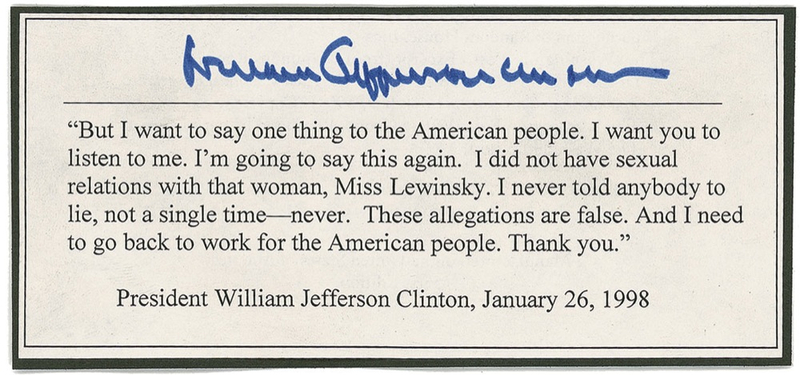 William Jefferson Clinton
“But I want to say one thing to the American people. I want you to
listen to me. I’m going to say this again.  I did not have sexual
relations with that woman, Miss Lewinsky. I never told anybody to
lie, not a single time—never.  These allegations are false. And I need
to go back to work for the American people. Thank you.”
President William Jefferson Clinton, January 26, 1998